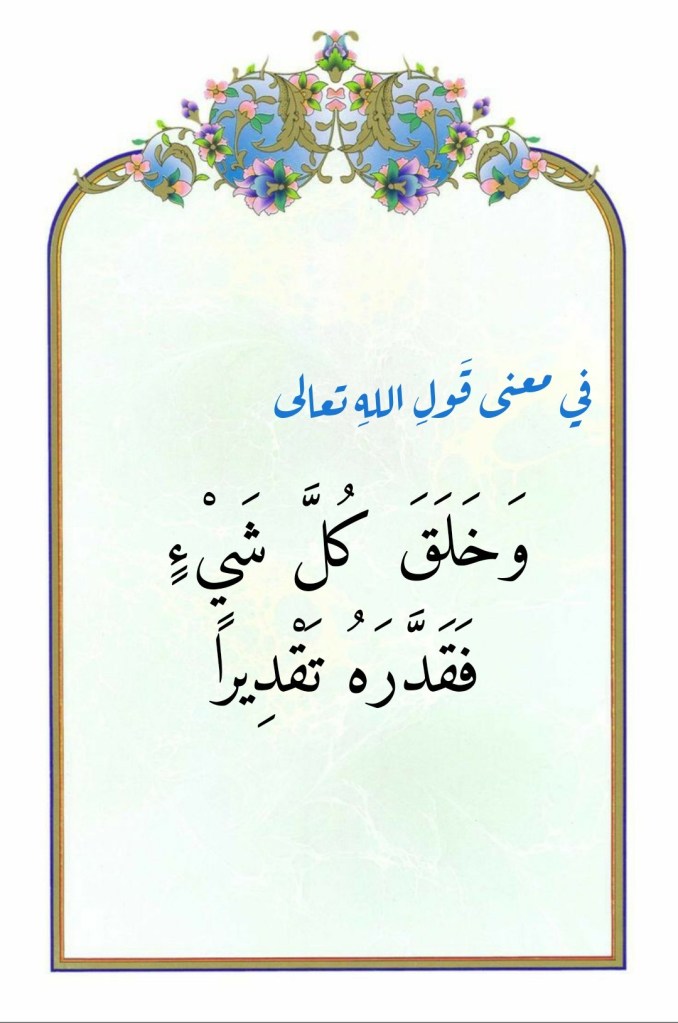 في معنى قَولِ اللهِ تعالى
وَخَلَقَ كُلَّ شَيْءٍ
فَقَدَّرَهُ تَقْدِيراً